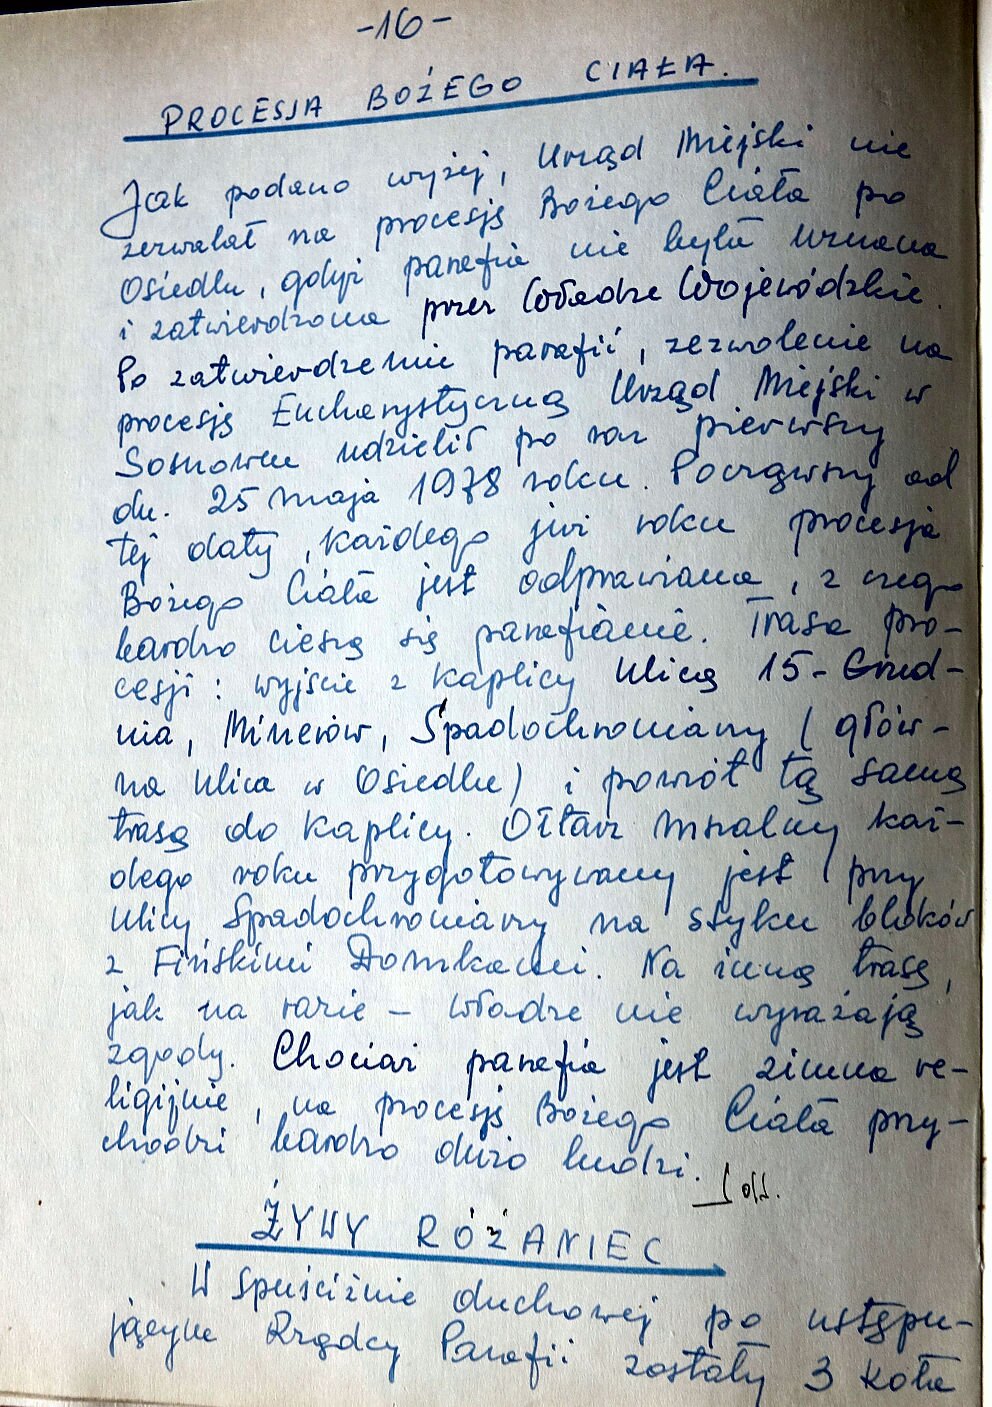 -16-
PROCESJA BOŻEGO CIAŁA.
Jak podano wyżej, Urząd Miejski nie
zezwalał na procesję Bożego Ciała po
Osiedlu, gdyż parafia nie była uznana
i zatwierdzona przez Władze Wojewódzkie.
Po zatwierdzenie parafii, zezwolenie na
procesję Eucharystyczną Urząd Miejski w
Sosnowcu udzielił po raz pierwszy
dn. 25 maja 1978 roku. Począwszy od
tej daty, każdego już roku procesja
Bożego Ciała jest odprawiana, z czego
bardzo cieszą się parafianie. Trasa pro-
cesji: wyjście z kaplicy ulicą 15-Grud-
nia, Minerów, Spadochroniarzy (głów-
na ulica w Osiedlu) i powrót tą samą
trasą do kaplicy. Ołtarz mszalny każ-
dego roku przygotowywany jest przy
ulicy Spadochroniarzy na styku bloków
z Fińskimi Domkami. Na inną trasę,
jak na razie – władze nie wyrażają
zgody. Chociaż parafia jest zimna re-
ligijnie, na procesję Bożego Ciała przy-
chodzi bardzo dużo ludzi.
ŻYWY RÓŻANIEC
W spuściźnie duchowej po ustępu-
jącym Rządcy Parafii zostały 3 koła